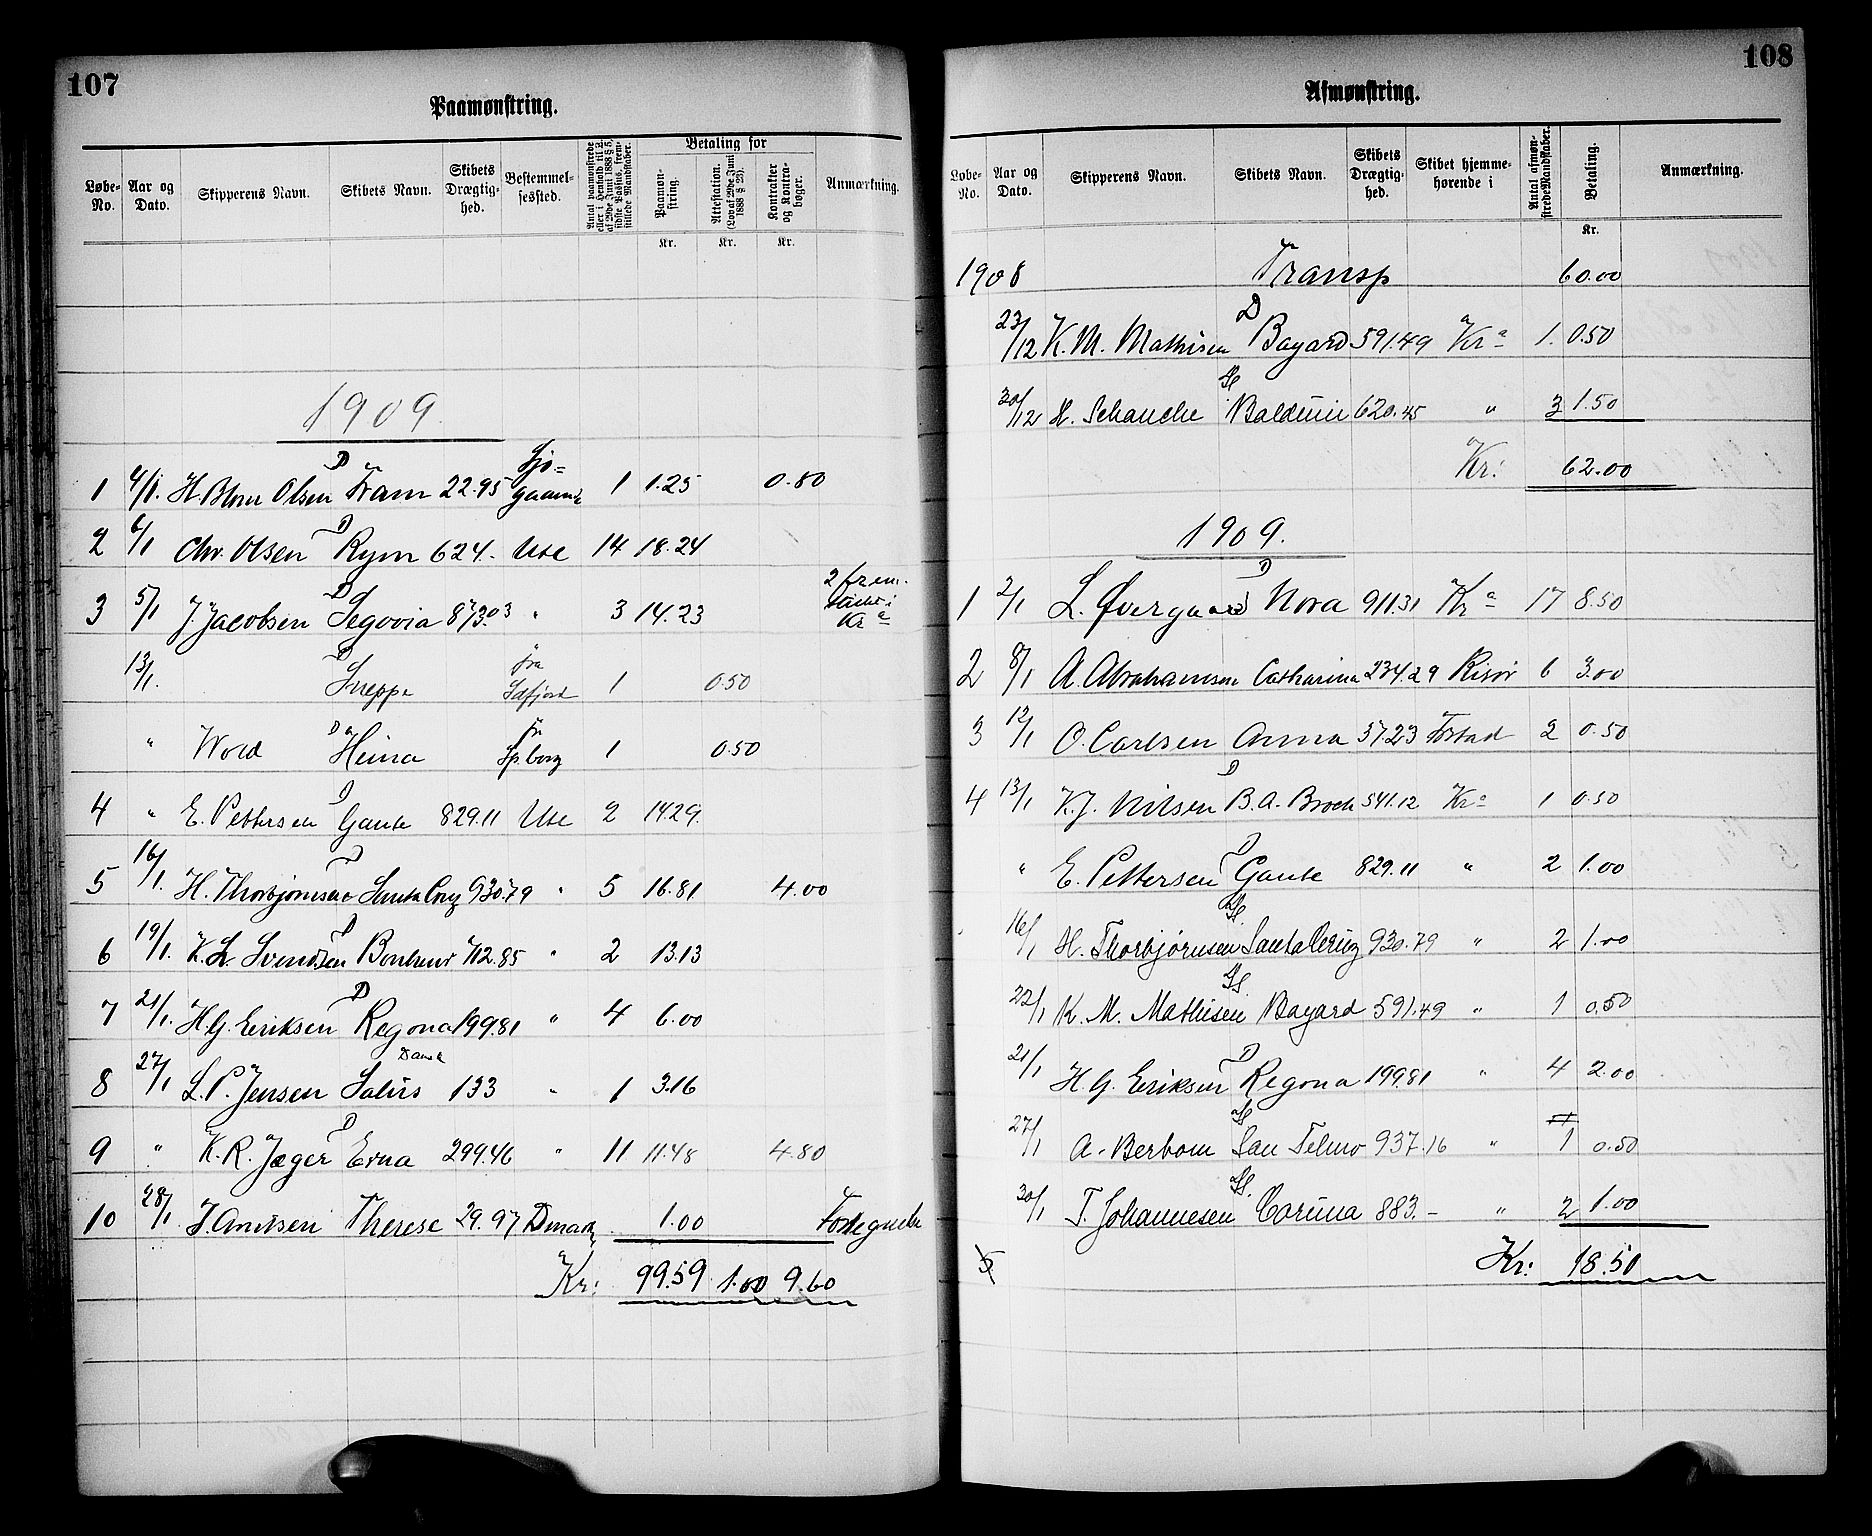 107
Paamønstring.
Løbe-No. Aar og Dato. Skipperens Navn. Skibets Navn. Skibets Drægtighed. Bestemmelsessted. Antal paamønstrede eller i Henhold til L. af 29de Juni 1888 § 5, sidste Passus, fremstillede Mandskaber. Betaling for Paamønstring. Attestation. (Lov af 29de Juni 1888 § 25). Kontrakter og Kontrabøger. Anmærkning.
Kr. Kr. Kr.
1909.
1 4/1. H. Blom Olsen D Fram 22.95 1 1.25 0.80
2 6/1 Chr. Olsen D Rym 624.- Ute 14 18.24
3 5/1 J. Jacobsen D Segovia 873.03 " 3 14.23 2 frem. i Kra
13/1. D Sneppe fra 1 0.50
" Word D Heina fra Sp.borg 1 0.50
4 " E. Pettersen D Gaute 829.11 Ute 2 14.29.
5 16/1. H. Thorbjørnsen D Santa Cruz 930.79 " 5 16.81 4.00
6 19/1. K. L. Svendsen D Bonheur 712.85 " 2 13.13
7 21/1. H.G. Eriksen D Regona 199.81 " 4 6.00
8 27/1 L. P. Jensen Dansk 133 " 1 3.16
9 " K. R. Jæger D Erna 299.46 " 11 11.48 4.80
10 28/1 Therese 29.97 Dmark 1.00
Kr: 99.59 1.00 9.60
108
Afmønstring.
Løbe-No. Aar og Dato. Skipperens Navn. Skibets Navn. Skibets Drægtighed. Skibet hjemmehørende i Antal afmønstrede Mandskaber. Betaling. Anmærkning.
Kr.
1908 Transp 60.00
23/12 K. M. Mathisen D Bayard 591.49 Kra 1. 0.50
30/12 H. Schanche Balduin 620.45 " 3 1.50
Kr: 62.00
1909.
1 2/1 L. Øvergaard D Nora 911.31 Kra 17 8.50
2 8/1 A. Abrahamsen Catharina 234.29 Risør 6 3.00
3 12/1 O. Carlsen Anna 37.23 2 0.50
4 13/1 K.J. Nilsen D B.A. Broch 541.12 Kra 1 0.50
" E. Pettersen D Gaute 829.11 " 2 1.00
16/1 H. Thorbjørnsen Santa Cruz 930.79 " 2 1.00
22/1 K. M. Mathisen Bayard 591.49 " 1 0.50
21/1 H. G. Eriksen D Regona 199.81 " 4 2.00
27/1 A. Berbom San Telmo 937.16 " 1 0.50
30/1 T. Johannesen Coruna 883.- " 2 1.00
5 Kr: 18.50